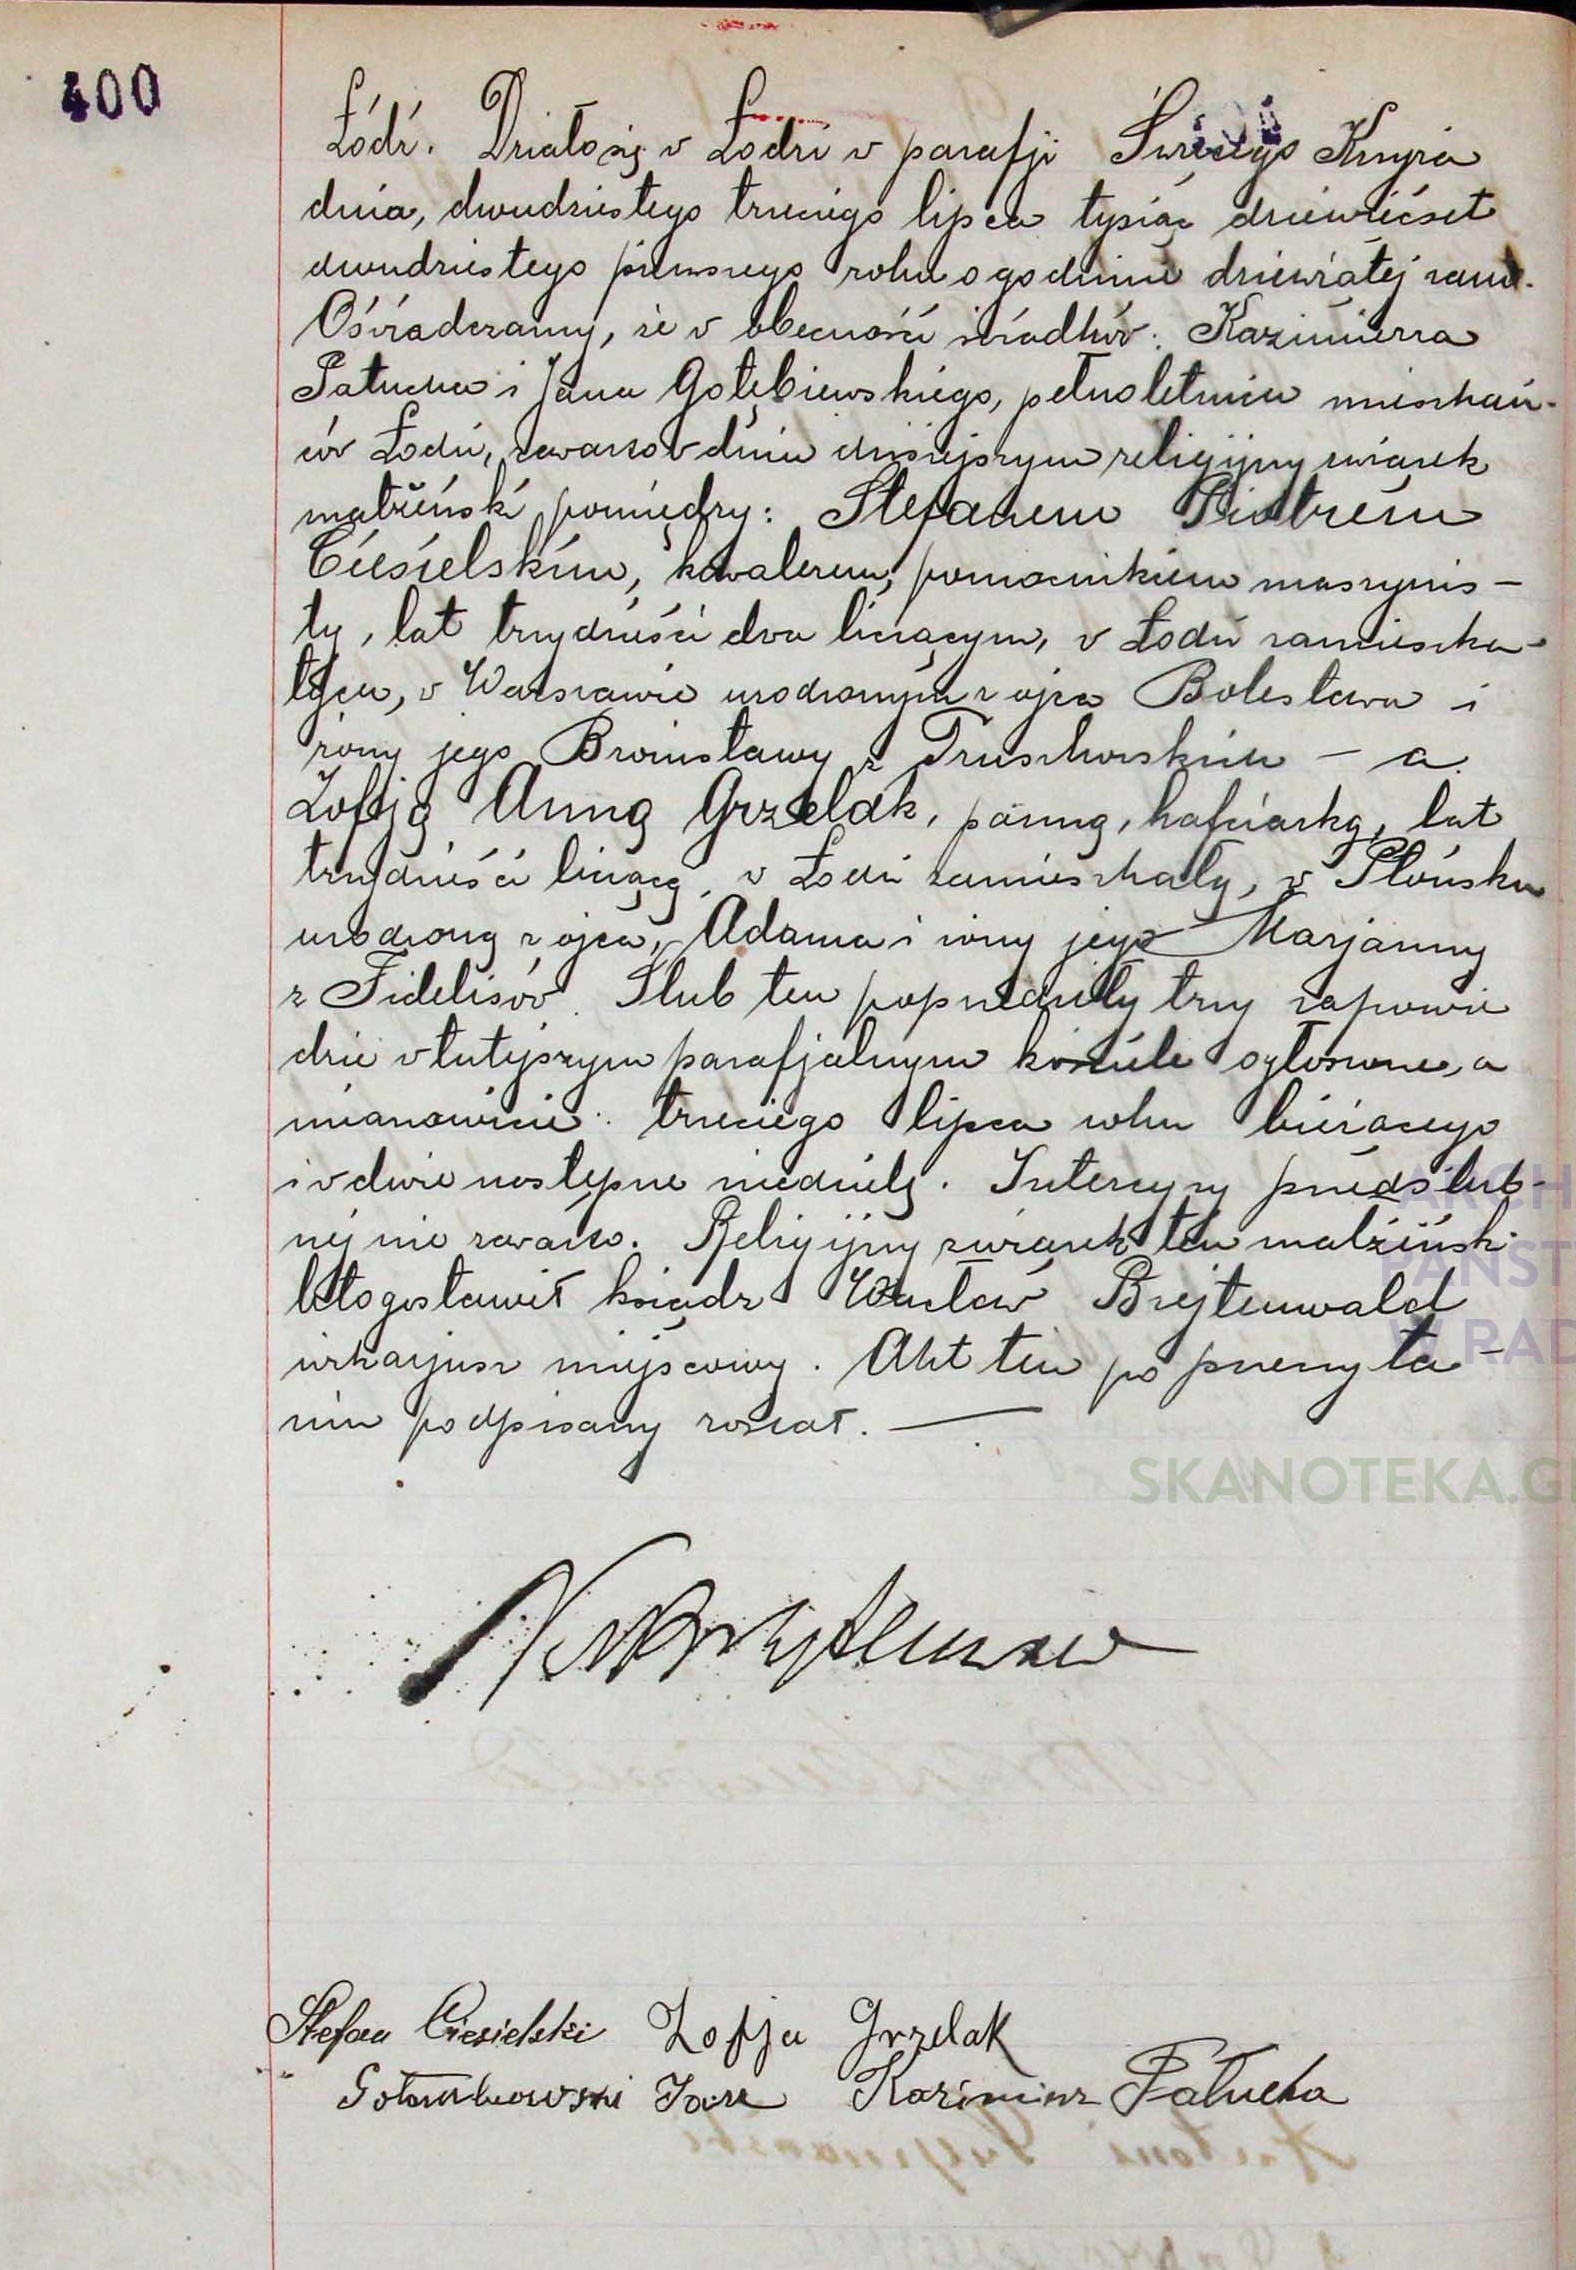 400
Łódź. Działo się w Łodzi w parafji Świętego Krzyża
dnia, dwudziestego trzeciego lipca tysiąc dziewięćset
dwudziestego pierwszego roku o godzinie dziewiątej rano.
Oświadczamy, że w obecności świadków: Kazimierza
Pałucha i Jana Gołębiewskiego, pełnoletnich mieszkań-
ców Łodzi, zawarto w dniu dzisiejszym religijny związek
małżeński pomiędzy: Stefanem Piotrem
Ciesielskim, kawalerem, pomocnikiem maszynis-
ty, lat trzydzieści dwa liczącym, w Łodzi zamieszka-
łym, w Warszawie urodzonym z ojca Bolesława i
żony jego Bronisławy z Truschowskich – a
Zofją Anną Grzelak, panną, hafciarką, lat
trzydzieści liczącą, w Łodzi zamieszkałą, w Płońsku
urodzoną z ojca, Adama i żony jego Marjanny
z Fidelisów. Ślub ten poprzedziły trzy zapowie
dzie w tutejszym parafjalnym kościele ogłoszone, a
mianowicie: trzeciego lipca roku bieżącego
i w dwie następne niedziele. Intercyzy przedślub-
nej nie zawarto. Religijny związek ten małżeński
błogosławił ksiądz Wacław Brejtenwald
wikarjusz miejscowy. Akt ten po przeczyta-
niu podpisany został. —
Stefan Ciesielski Zofja Grzelak
Jan Kazimierz Pałucha
ARCH
PAŃST
W RAD
SKANOTEKA.G